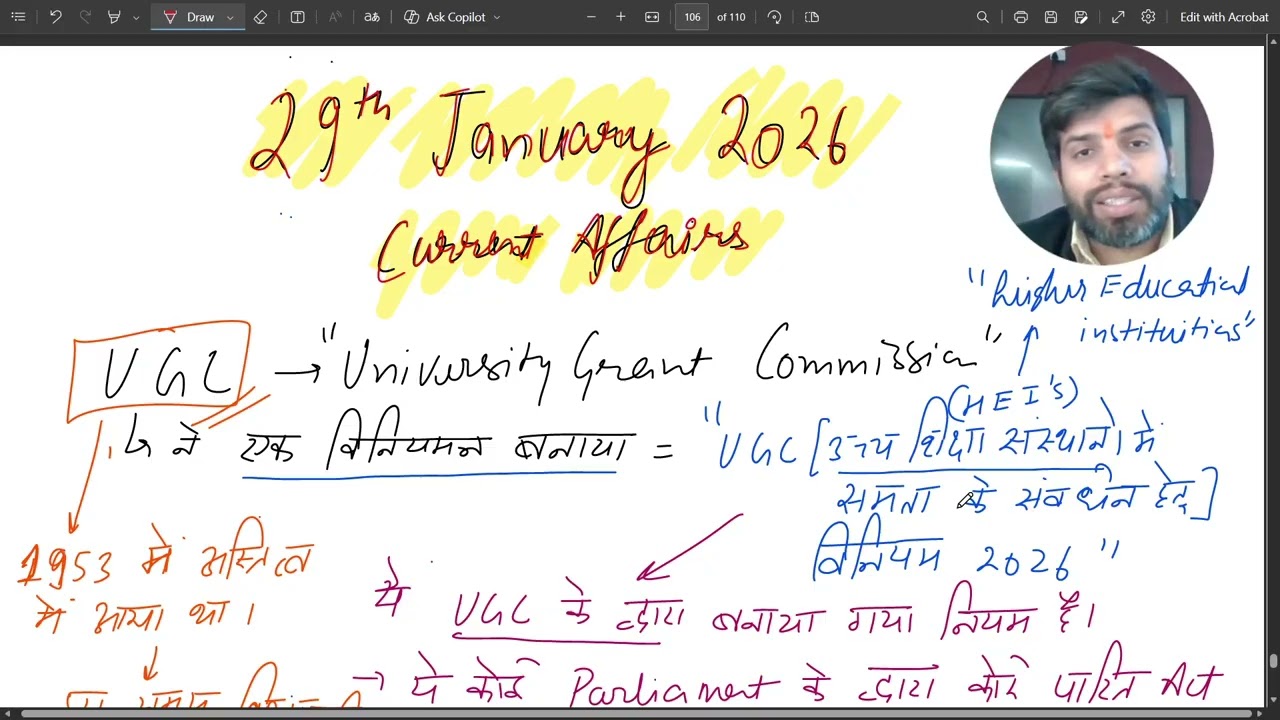 Draw
Ask Copilot
106 of 110
Edit with Acrobat
29th January 2026
Current Affairs
"higher Educational
instituitias"
UGC → "University Grant Commission"
(HEI's)
ने एक विनियमन बनाया = "UGC [उच्च शिक्षा संस्थानों में
समता के संवर्धन हेतु]
विनियम 2026"
1953 में अस्तित्व
में आया था।
ये UGC के द्वारा बनाया गया नियम है।
→ ये कोई Parliament के द्वारा कोई पारित Act